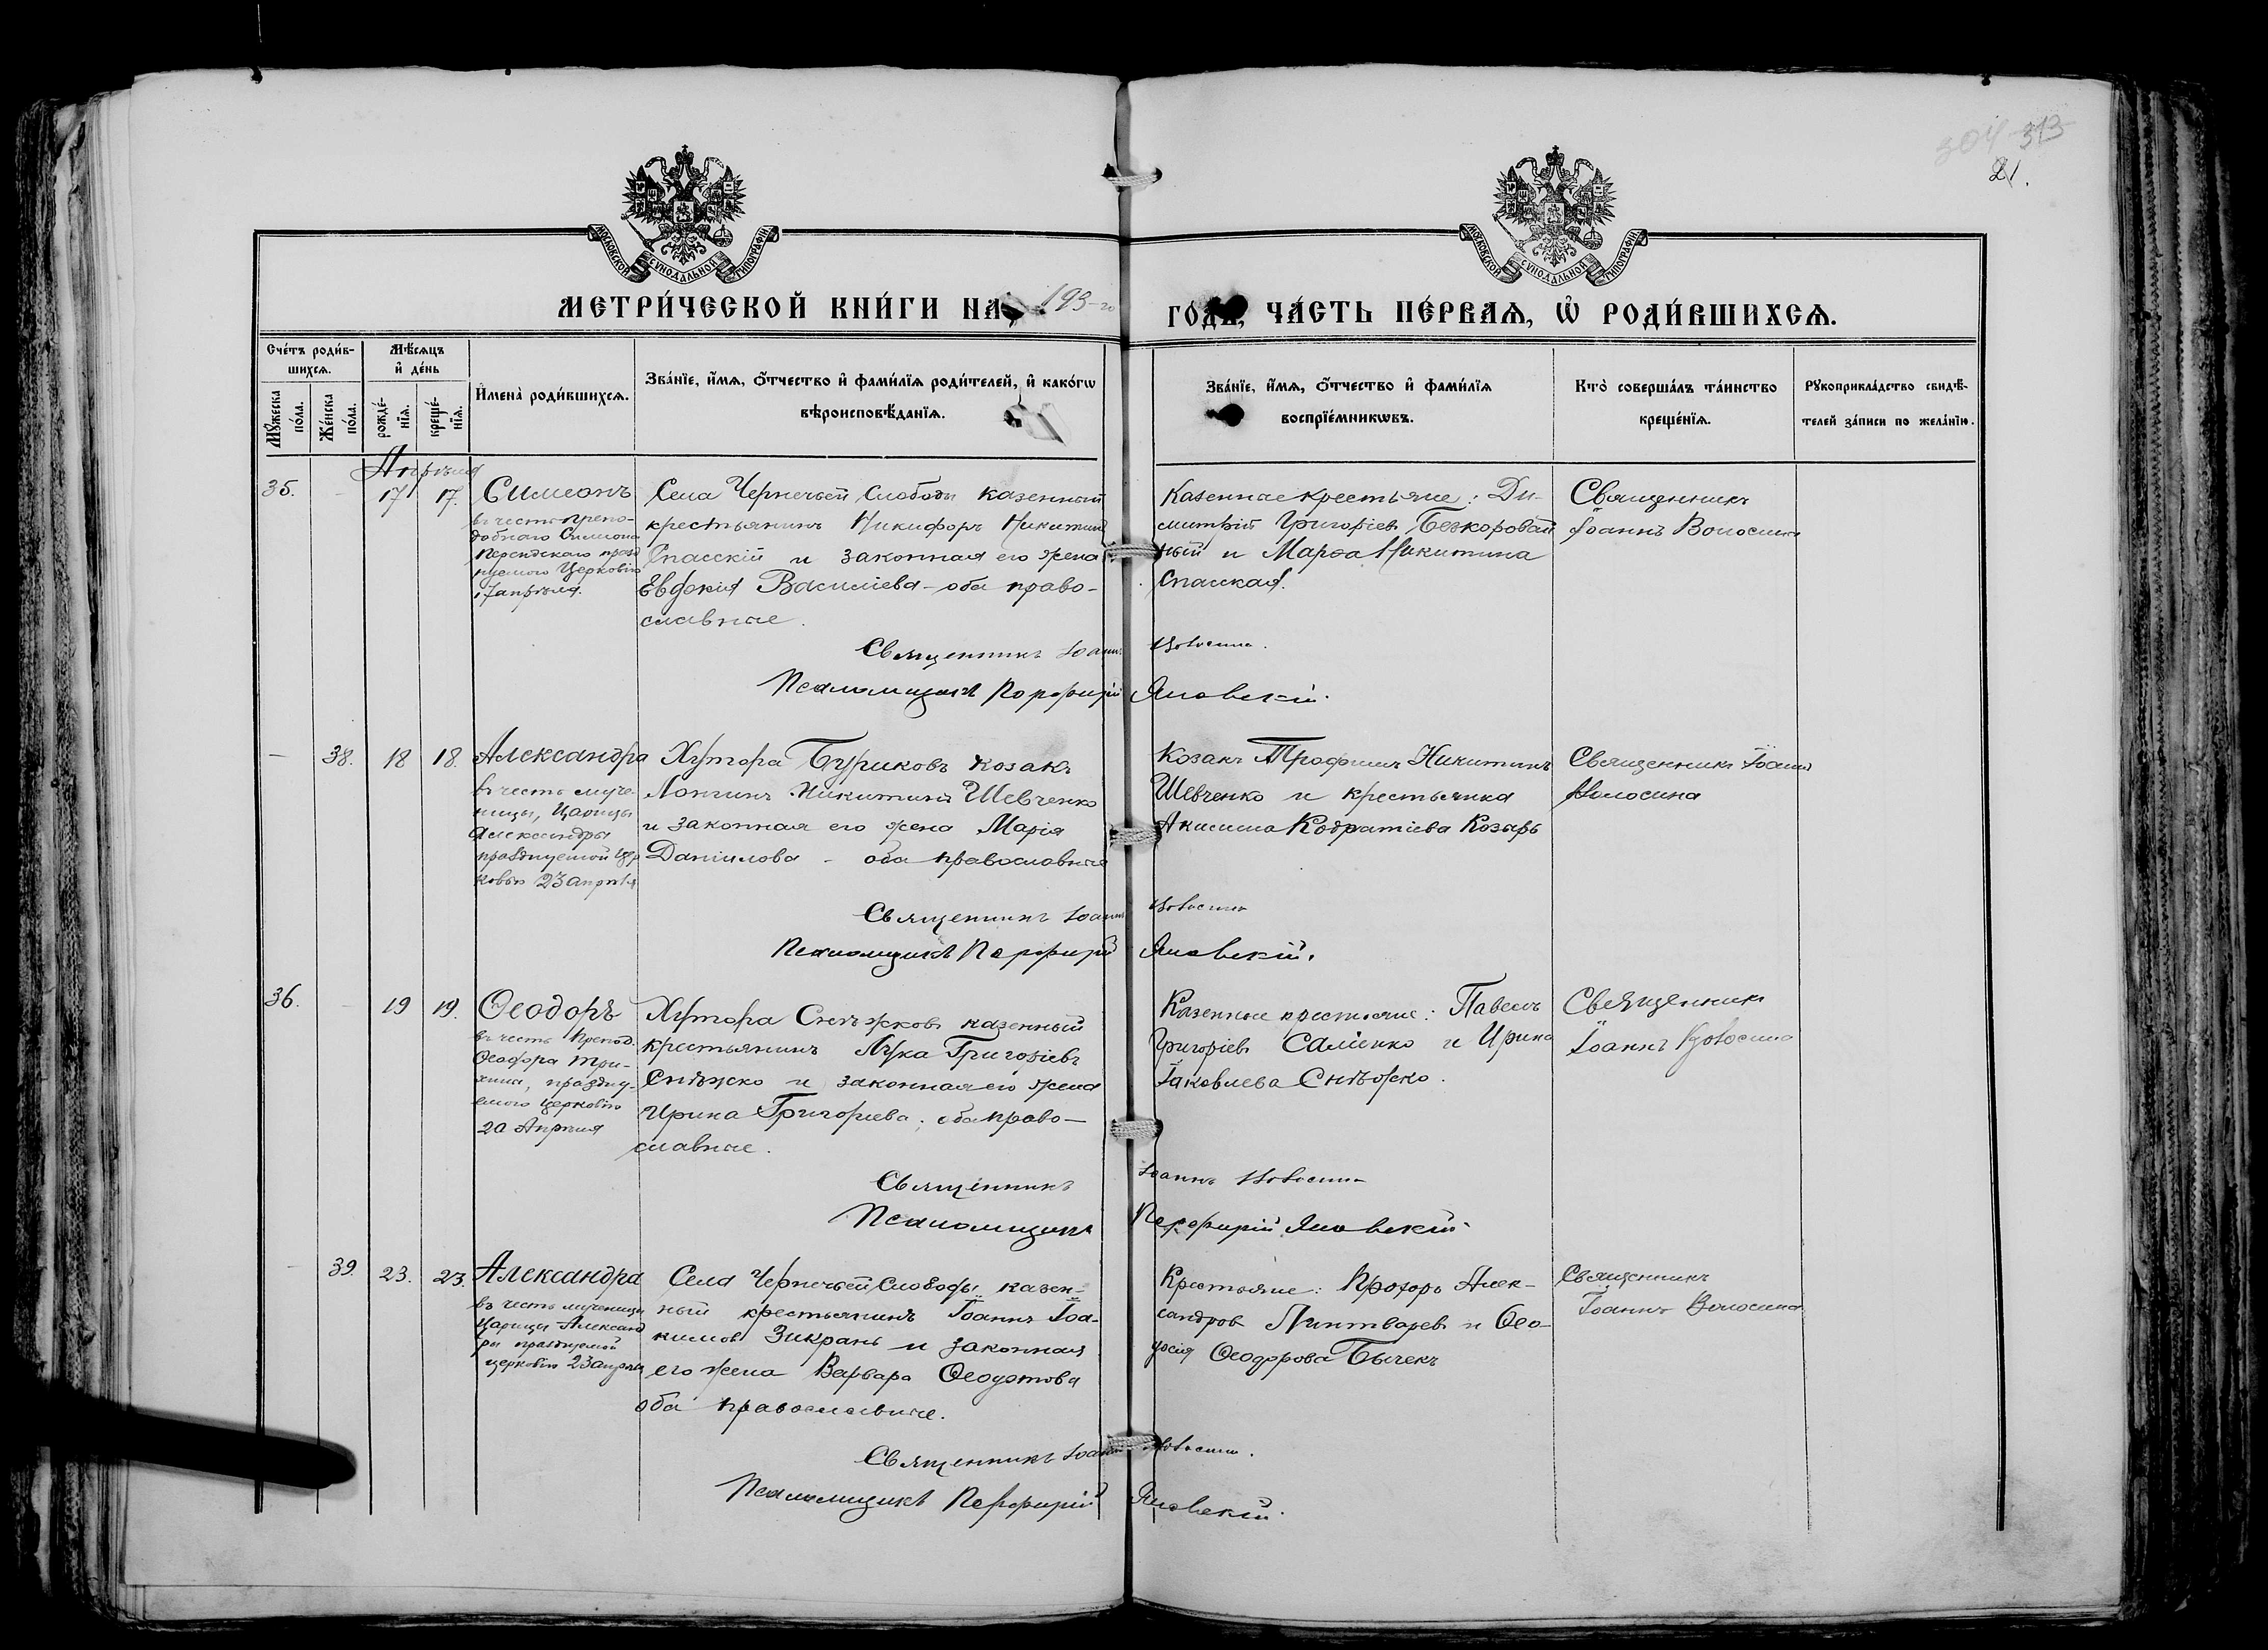 304 313
21.
МОСКОВСКОЙ СѴНОДАЛЬНОЙ ТИПОГРАФІИ
МОСКОВСКОЙ СѴНОДАЛЬНОЙ ТИПОГРАФІИ
МЕТРИ́ЧЕСКОЙ КНИ́ГИ НА 193-го ГО́ДЪ, ЧА́СТЬ ПЕ́РВАѦ, Ѡ҆ РОДИ́ВШИХСѦ.
Сче́тъ роди́в-
шихсѧ.
Мꙋ́жеска по́ла.
Же́нска по́ла.
Мѣ́сѧцъ
и҆ де́нь
рожде́-
нїѧ.
креще́-
нїѧ.
И҆мена̀ роди́вшихсѧ.
Зва́нїе, и҆́мѧ, ѻ҆́тчество и҆ фами́лїѧ роди́телей, и҆ како́гѡ
вѣроисповѣ́данїѧ.
Зва́нїе, и҆́мѧ, ѻ҆́тчество и҆ фами́лїѧ
воспрїе́мникѡвъ.
Кто̀ соверша́лъ та́инство
креще́нїѧ.
Рꙋкоприкла́дство свидѣ́-
телей за́писи по жела́нїю.
Апрѣля
35. - 17 17. Симеонъ
въ честь препо-
добнаго Симеона
Персидскаго празд
нуемого Церковію
17 апрѣля.
Села Чернечьей Слободы казенный
крестьянинъ Никифоръ Никитинъ
Спасскій и законная его жена
Евфимія Василіева - оба право-
славные.
Казенные крестьяне: Ди-
митрій Григоріевъ Безкоровай
ный и Марѳа Никитина
Спасская.
Священникъ
Іоаннъ Волосина
Священникъ Іоаннъ Волосина.
Псаломщикъ Порфирій Яновскій.
- 38. 18 18. Александра
въ честь муче-
ницы, Царицы
Александры
празднуемой Цер
ковью 23 апрѣля
Хутора Буриковъ козакъ
Лонгинъ Никитинъ Шевченко
и законная его жена Марія
Даніилова - оба православные
Козакъ Трофимъ Никитинъ
Шевченко и крестьянка
Акилина Кодратіева Козырь
Священникъ Іоаннъ
Волосина
Священникъ Іоаннъ Волосина
Псаломщикъ Порфирій Яновскій.
36. - 19 19. Ѳеодоръ
въ честь Препод.
Ѳеодора Три-
хина, праздну-
емого Церковію
20 Апрѣля
Хутора Снѣжковъ казенный
крестьянинъ Лука Григоріевъ
Снѣжко и законная его жена
Ирина Григорьева; оба право-
славные.
Казенные крестьяне: Павелъ
Григоріевъ Саліенко и Ирина
Іаковлева Снѣжко.
Священникъ
Іоаннъ Волосина
Священникъ Іоаннъ Волосина
Псаломщикъ Порфирій Яновскій.
- 39. 23. 23. Александра
въ честь мученицы
Царицы Александ
ры празднуемой
церковію 23 апрѣля
Села Чернечьей Слободы казен-
ный крестьянинъ Іоаннъ Іоа-
кимовъ Зикрань и законная
его жена Варвара Ѳеодотова
оба православные.
Крестьяне: Прохоръ Алек-
сандровъ Линтваревъ и Ѳео-
досія Ѳеодорова Бычекъ
Священникъ
Іоаннъ Волосина
Священникъ Іоаннъ Волосина.
Псаломщикъ Порфирій Яновскій.